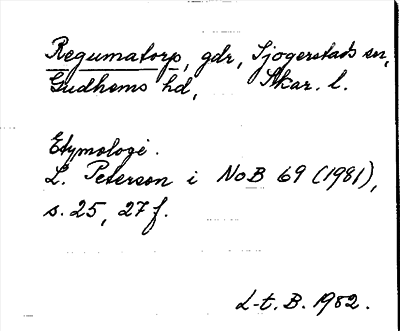 Regumatorp, gdr, Sjogerstads sn,
Gudhems hd, Skar. l.
Etymologi.
L. Peterson i NoB 69 (1981),
s. 25, 27 f.
L-t. B. 1982.